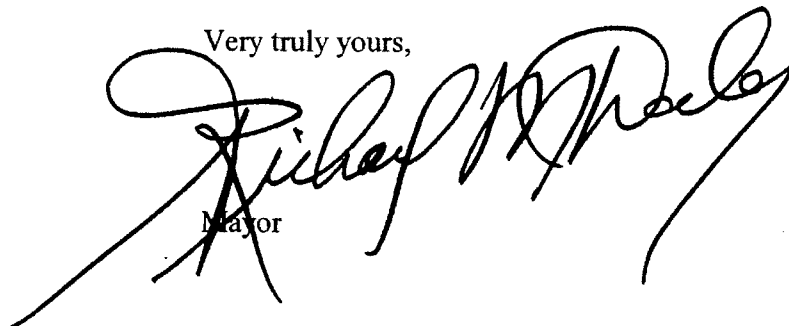 Very truly yours,
Richard M. Daley
Mayor